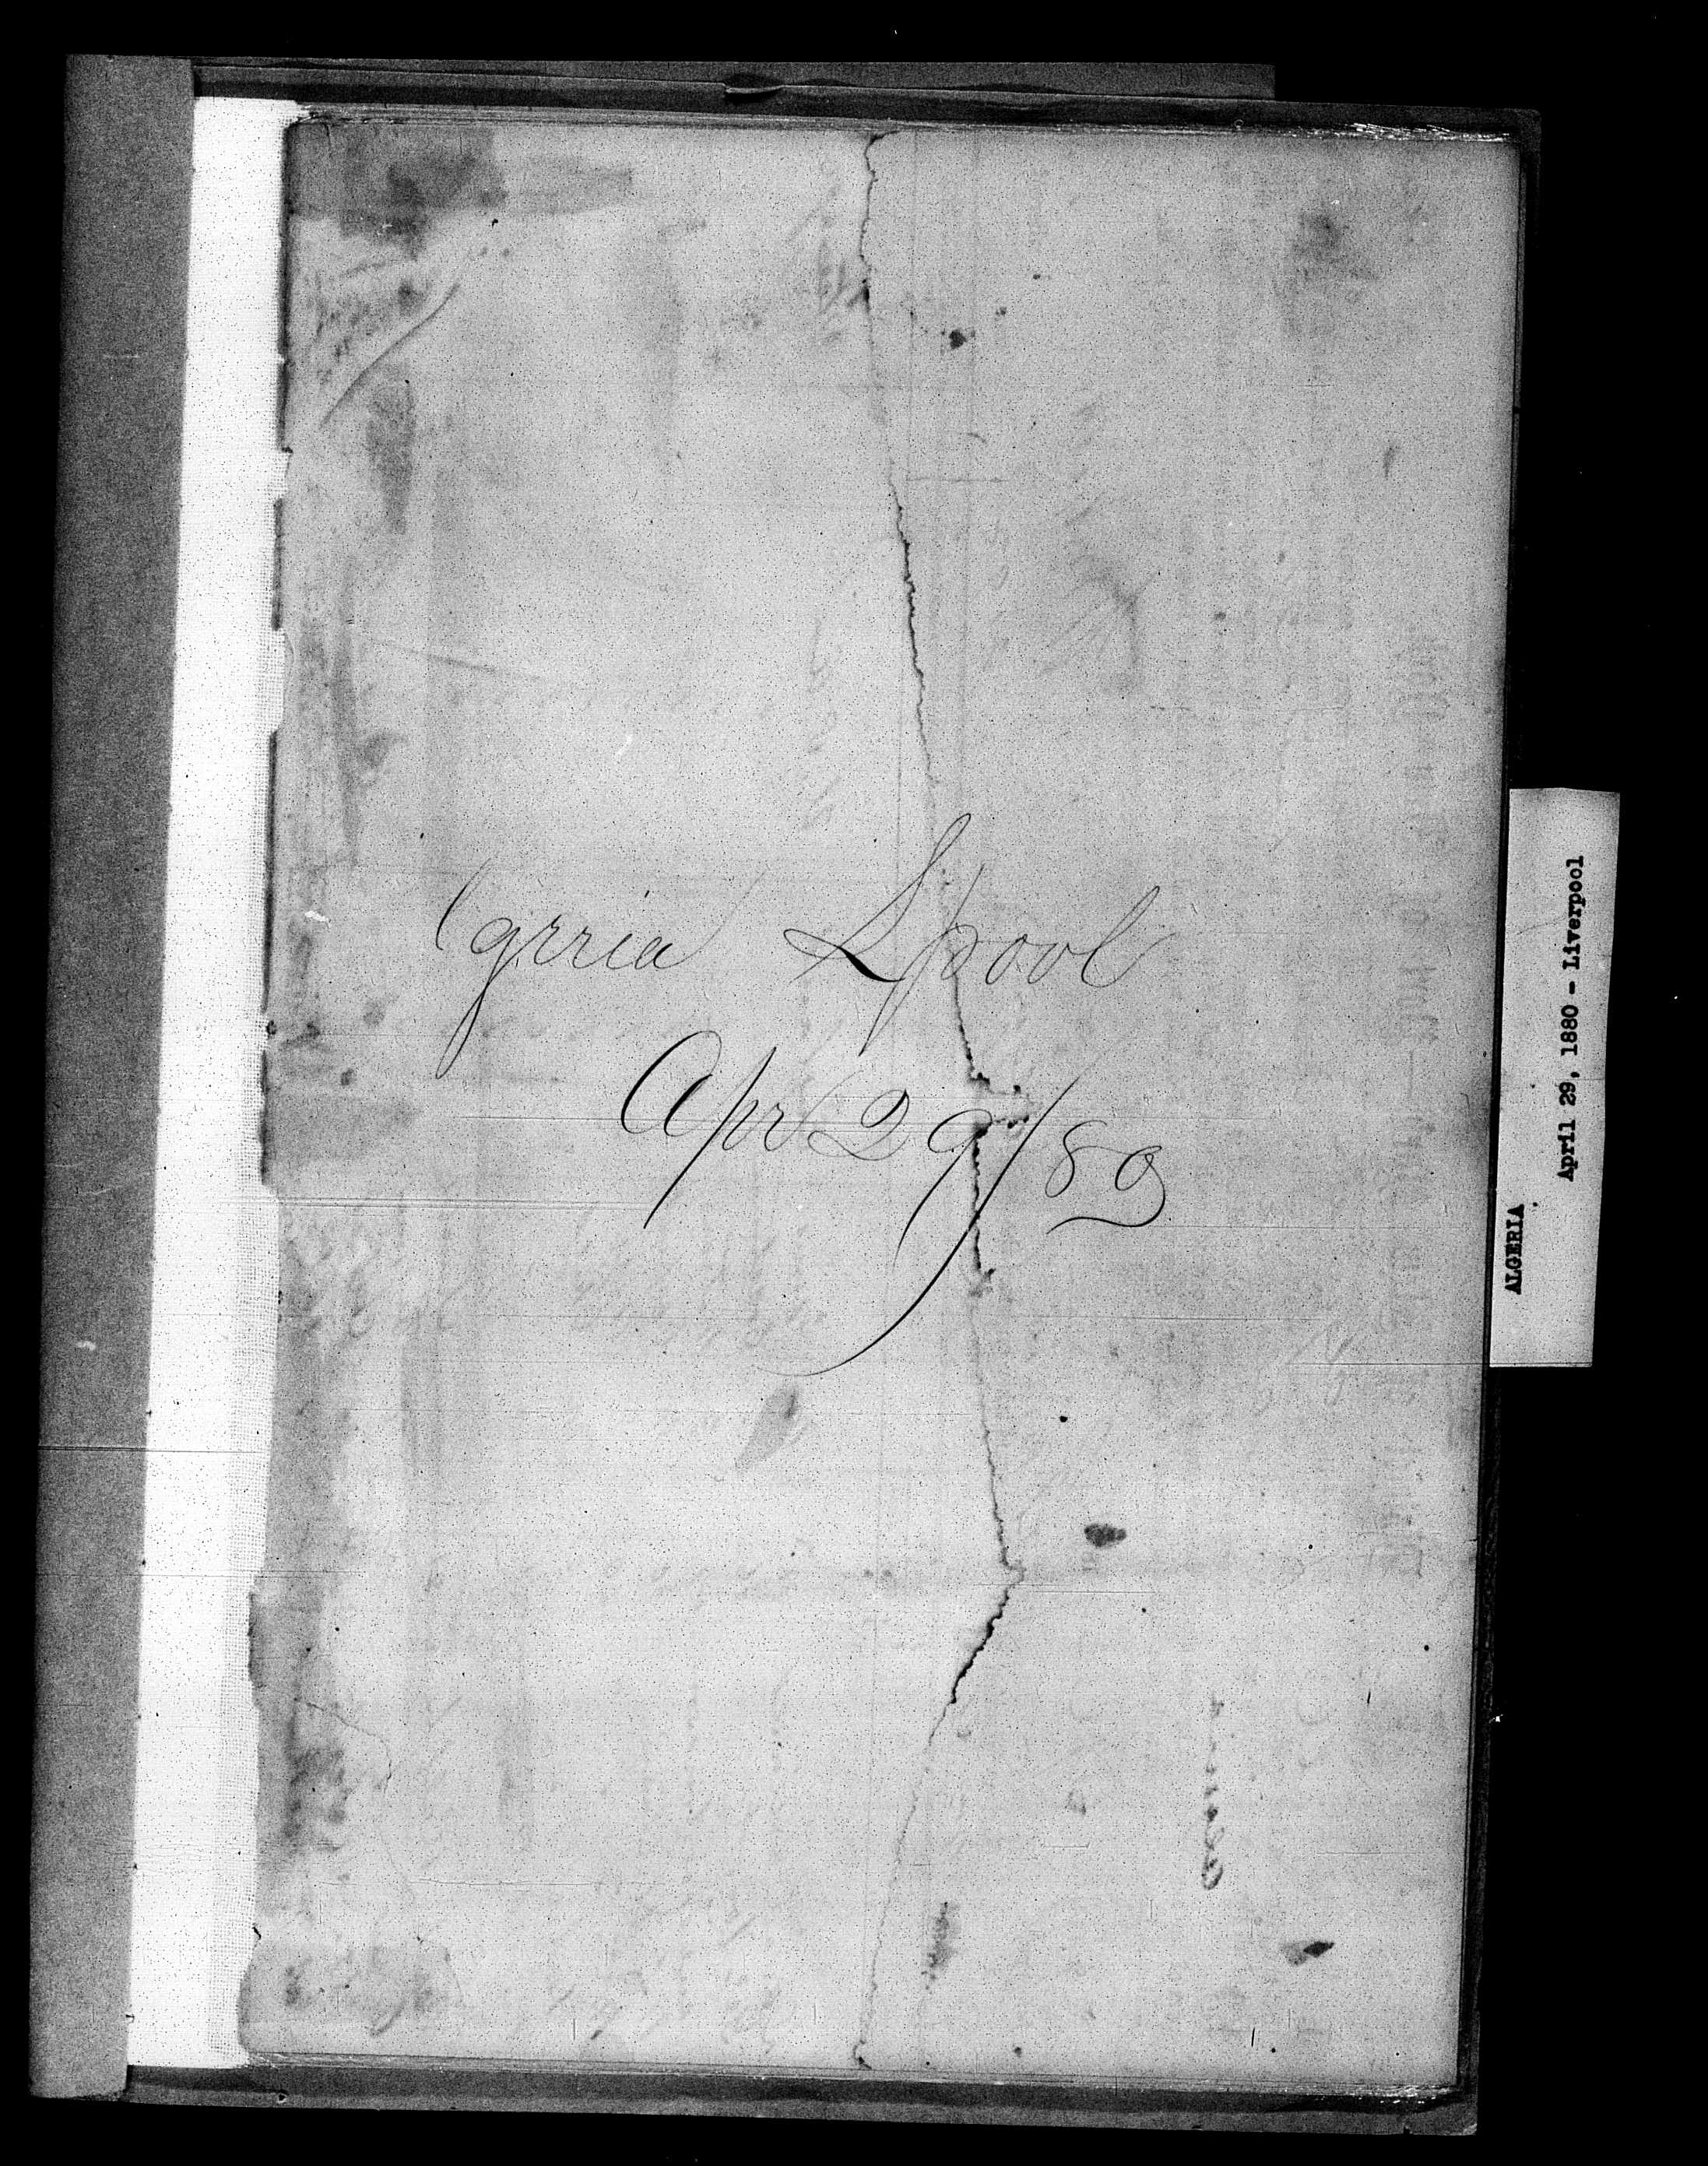 Lgeria Lpool
Apr 29/80
ALGERIA
April 29, 1880 - Liverpool